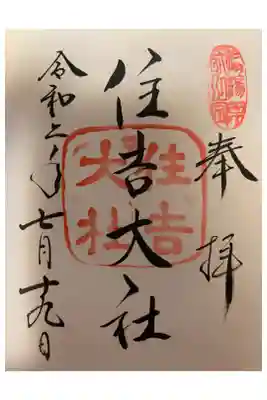 奉拝
住吉大社
住吉
大社
令和六年七月十九日